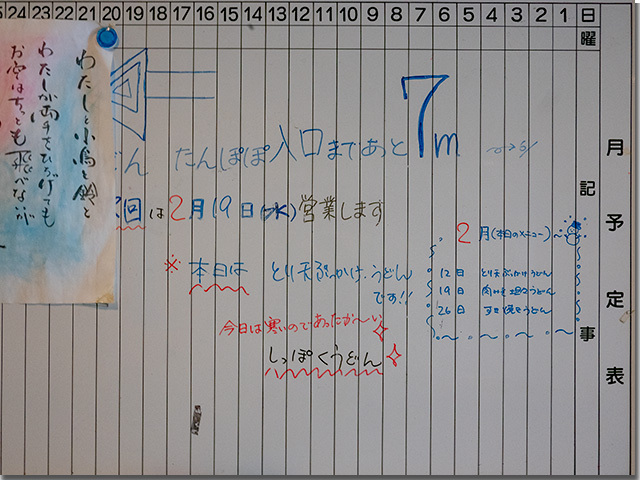 24 23 22 21 20 19 18 17 16 15 14 13 12 11 10 9 8 7 6 5 4 3 2 1 日
曜
月予定表
記事
わたしと小鳥と鈴と
わたしが両手をひろげても
お空はちっとも飛べないが
どん たんぽぽ入口まであと7m
次回は2月19日(水)営業します
※本日は とり天ぶっかけうどん
です!!
今日は寒いのであったか〜い
しっぽくうどん
2月(本日のメニュー)
12日 とり天ぶっかけうどん
19日 肉
26日 すき焼きうどん